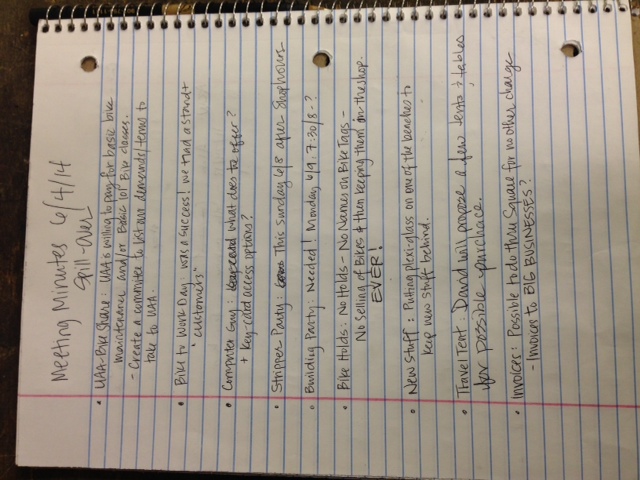 Meeting Minutes 6/4/14
Spill-over
• UAA-Bike Share: UAA is willing to pay for basic bike
maintenance and/or Basic 101 Bike classes.
- Create a committee to list our demands/terms to
take to UAA.
• Bike to Work Day: was a success! we had a stand +
"customers"
• Computer Guy: what does he offer?
+ Key-card access options?
• Stripper Party: This Sunday 6/8 after Shop hours
• Building Party: Needed! Monday 6/9. 7:30/8-?
• Bike Holds: No Holds - No Names on Bike Tags -
No Selling of Bikes & them keeping them in the shop.
EVER!
• New Stuff: Putting plexi-glass on one of the benches to
keep new stuff behind.
• Travel Tent: David will propose a few tents & tables
for possible purchase.
• Invoices: Possible to do thru Square for no other charge
- Invoices to BIG BUSINESSES?